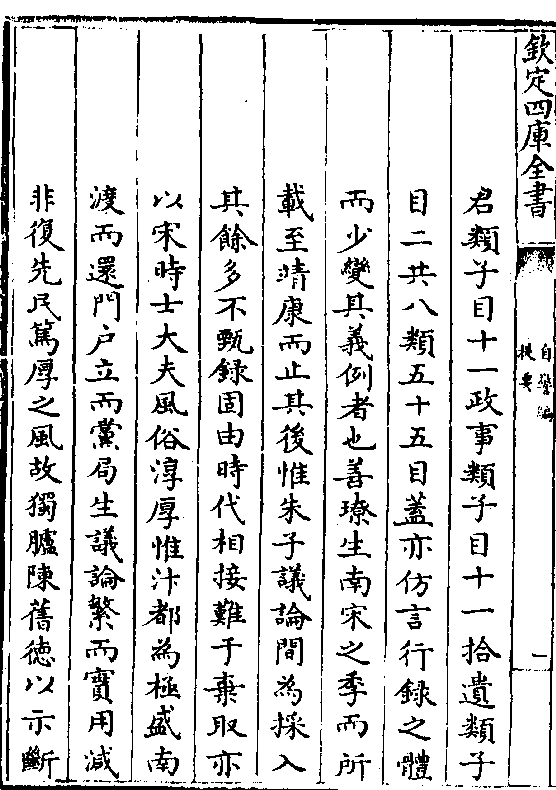 欽定四庫全書
自警編
提要
一
君類子目十一政事類子目十一拾遺類子
目二共八類五十五目蓋亦仿言行録之體
而少變其義例者也善璙生南宋之季而所
載至靖康而止其後惟朱子議論間為採入
其餘多不甄録固由時代相接難于棄取亦
以宋時士大夫風俗淳厚惟汴都為極盛南
渡而還門户立而黨局生議論繁而實用減
非復先民篤厚之風故獨臚陳舊徳以示斷